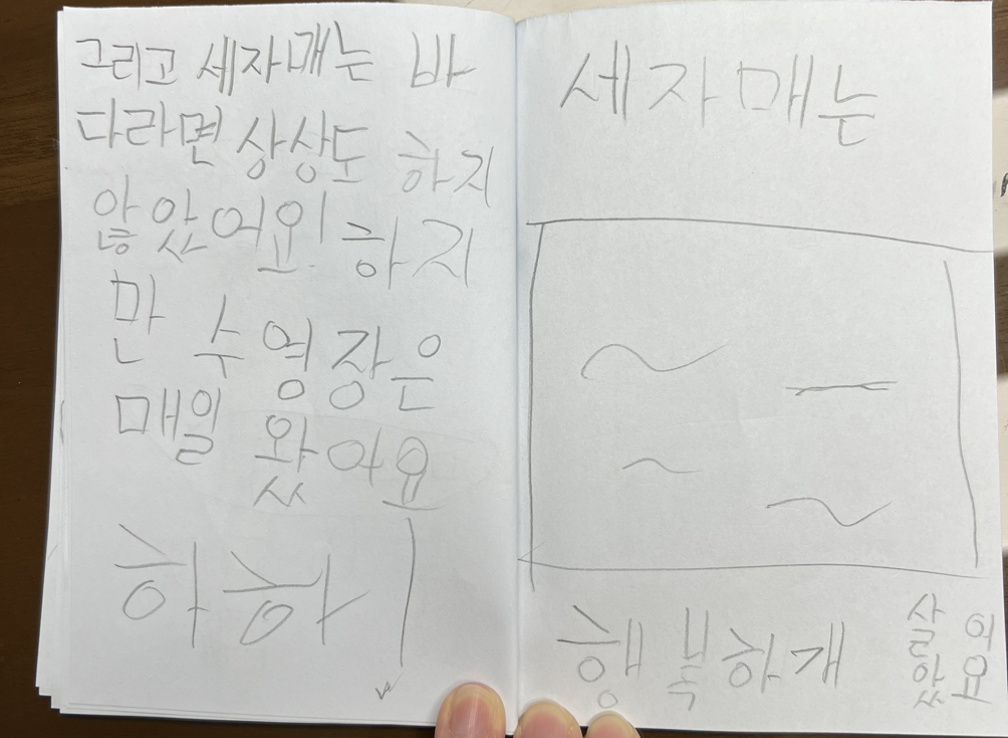 그리고 세자매는 바
다라면 상상도 하지
않았어요! 하지
만 수영장은
매일 왔어요
하하!
세자매는
행복하개 살았
어요